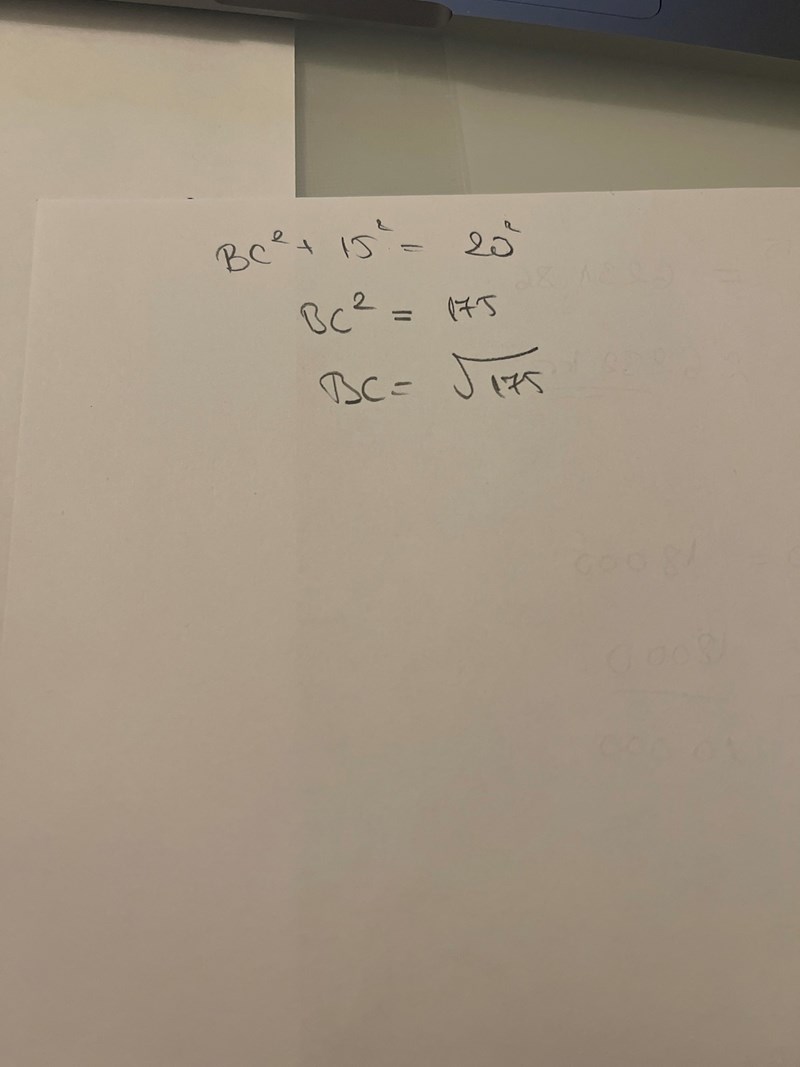 BC² + 15² = 20²
BC² = 175
BC = √175